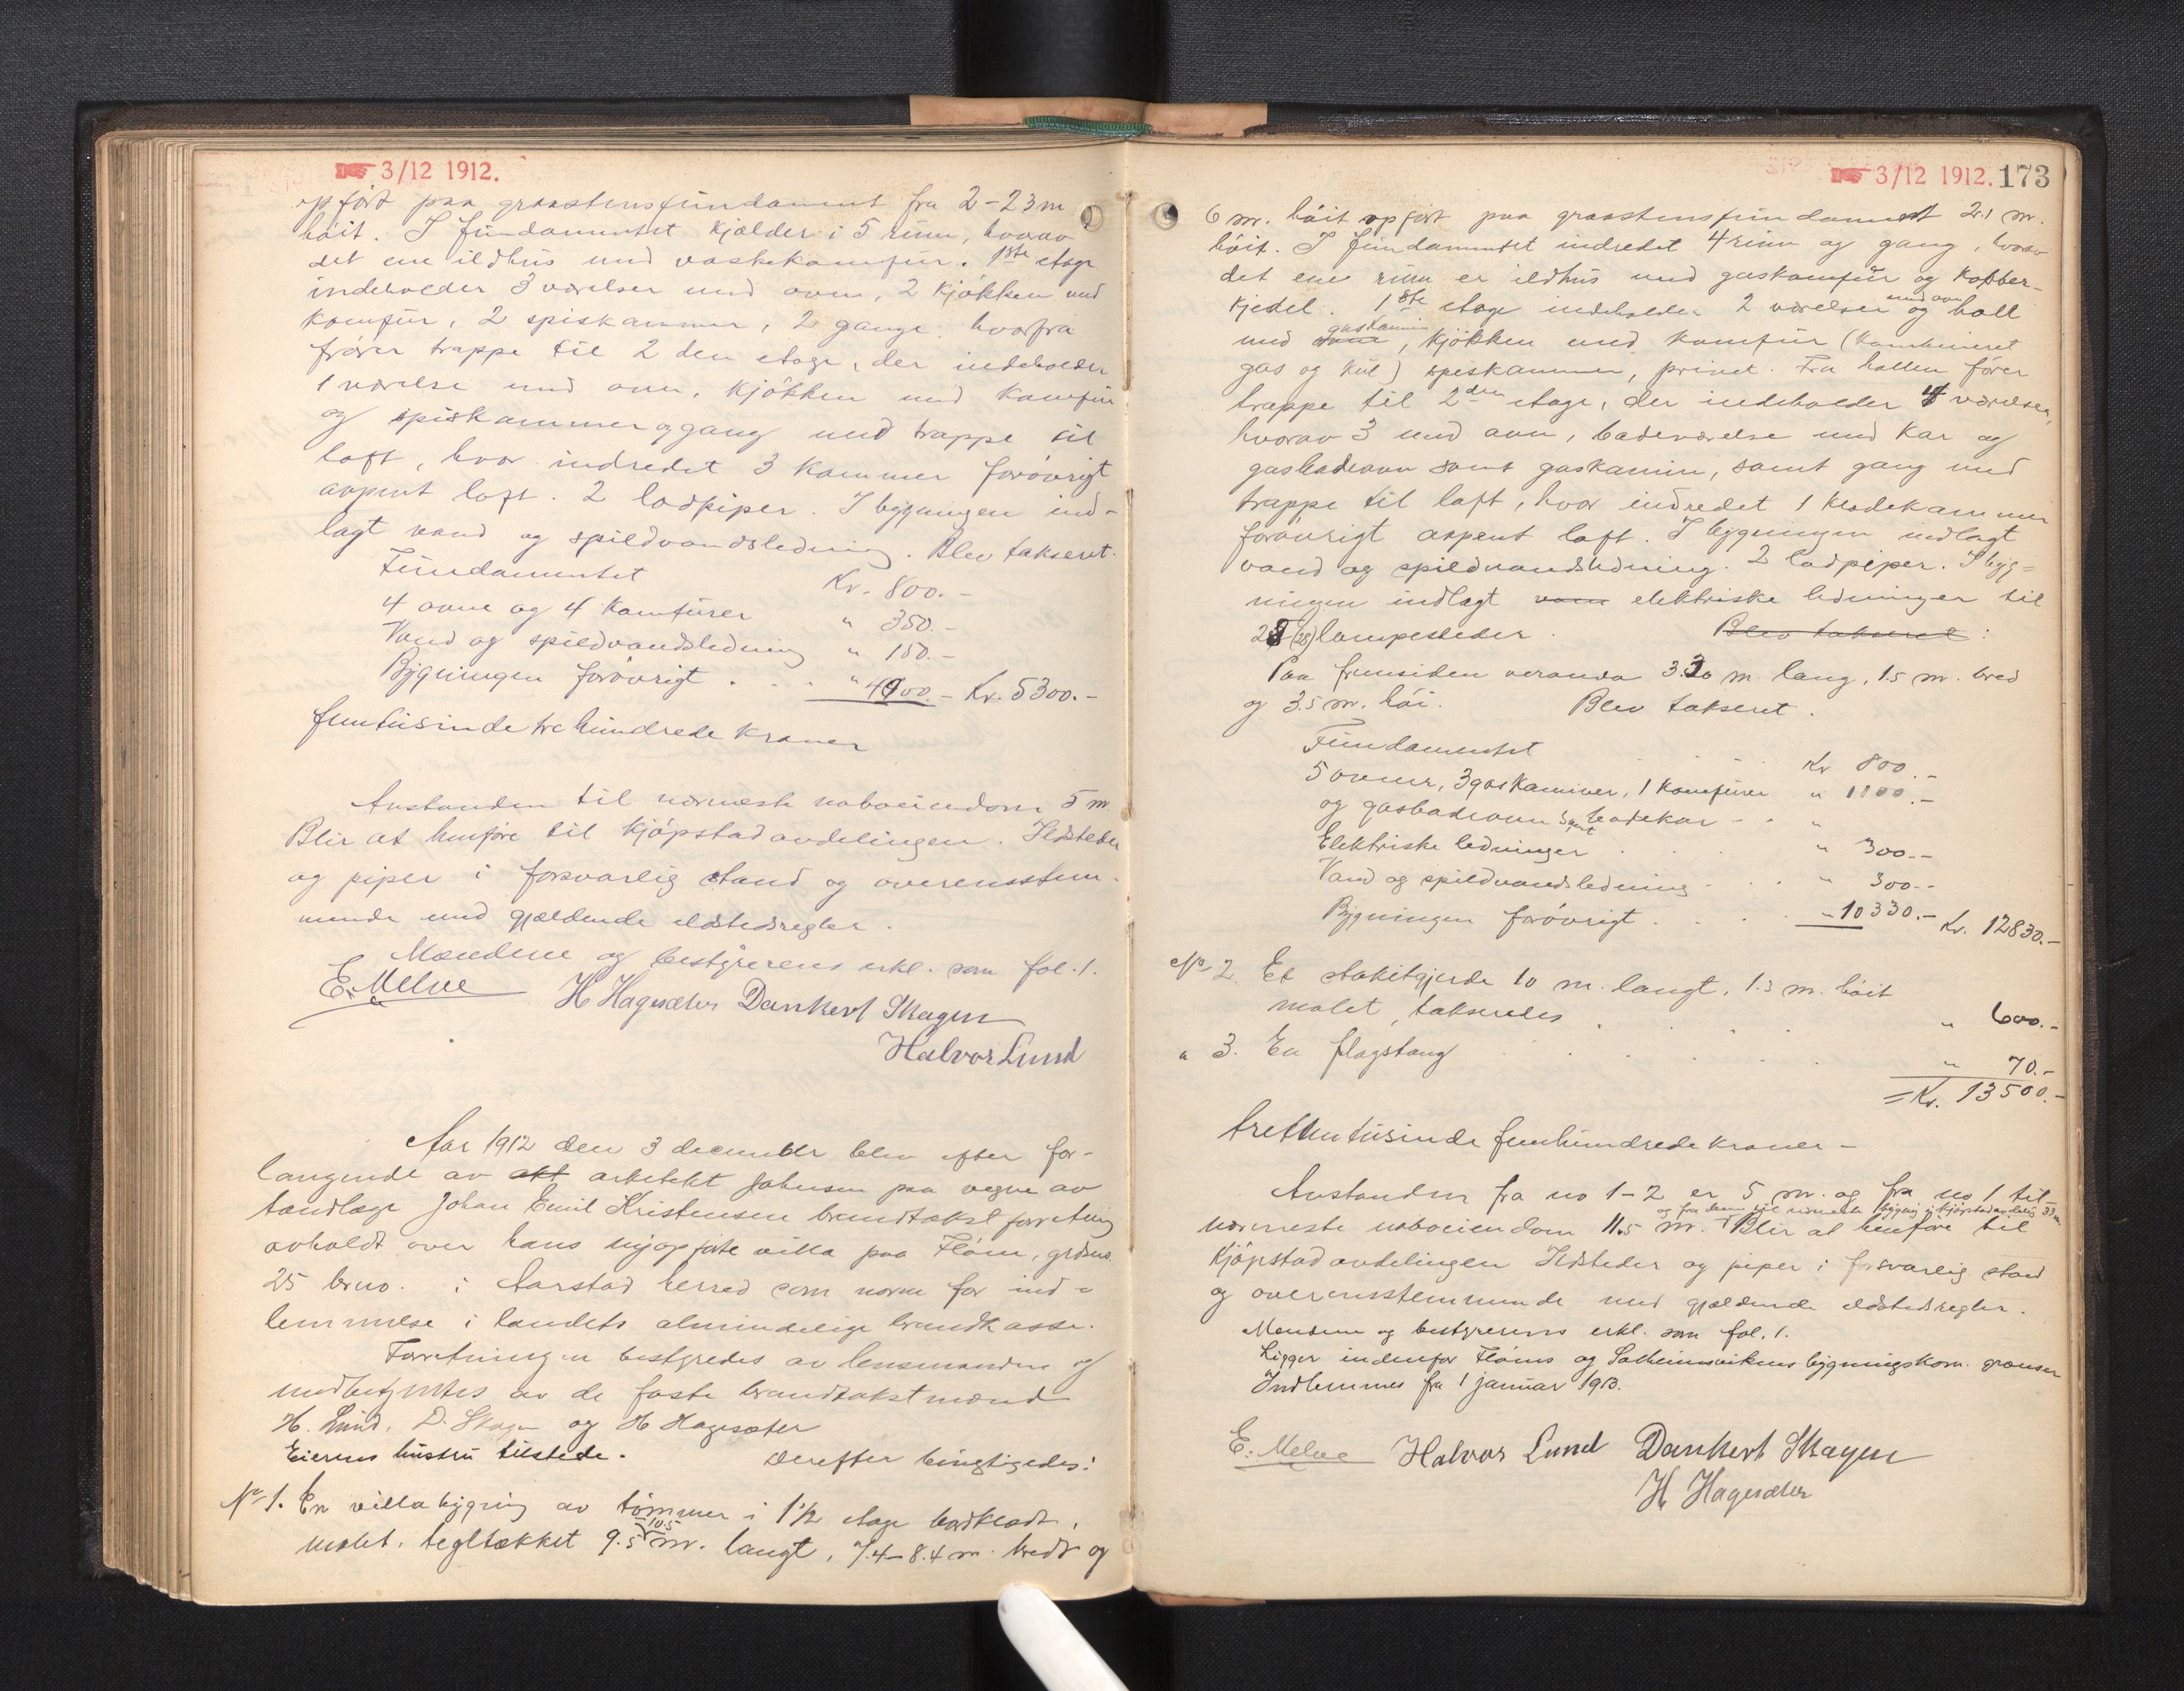 3/12 1912.
opført paa graastensfundament fra 2-2.3 m
høit. I fundamentet kjælder i 5 rum, hvorav
det ene ildhus med vaskekomfur. 1ste etage
indeholder 3 værelser med ovn, 2 kjøkken med
komfur, 2 spiskammer, 2 gange hvorfra
fører trappe til 2 den etage, der indeholder
1 værelse med ovn, kjøkken med komfur
og spiskammer og gang med trappe til
loft, hvor indredet 3 kammer forøvrigt
aapent loft. 2 lodpiper. I bygningen ind-
lagt vand og spildvandsledning. Blev takseret.
Fundamentet Kr. 800.-
4 ovne og 4 komfurer " 350.-
Vand og spildvandsledning " 150.-
Bygningen forøvrigt . . . " 4000.- Kr. 5300.-
femtusinde tre hundrede kroner
Avstanden til nærmeste naboeiendom 5 m.
Blir at henføre til kjøpstadavdelingen. Ildsteder
og piper i forsvarlig stand og overensstem-
mende med gjældende ildstedsregler.
Mændene og bestyrerens erkl. som fol. 1.
E. Melve H Hagesæter Dankert Skagen
Halvor Lund
Aar 1912 den 3 december blev efter for-
langende av akt arkitekt Johnsen paa vegne av
tandlæge Johan Emil Kristensen brandtakst forretning
avholdt over hans nyopførte villa paa Fløen, grdsno.
25 brno. i Aarstad herred som norm for ind-
lemmelse i landets almindelige brandkasse.
Forretningen bestyredes av lensmanden og
medbetjentes av de faste brandtakstmænd
H. Lund, D. Skagen og H Hagesæter
Eierens hustru tilstede. Derefter besigtigedes:
No 1. En villabygning av tømmer i 1 1/2 etage bordklædt,
malet, tegltækket 9.5 10.5 m. langt, 7.4-8.4 m. bredt og
3/12 1912. 173
6 m. høit opført paa graastensfundament 2.1 m.
høit. I fundamentet indredet 4 rum og gang, hvorav
det ene rum er ildhus med gaskomfur og kobber-
kjedel. 1ste etage indeholder 2 værelser med ovn og hall
med ovne gaskamin, kjøkken med komfur (kombineret
gas og kul) spiskammer, privet. Fra hallen fører
trappe til 2den etage, der indeholder 4 værelser,
hvorav 3 med ovn, badeværelse med kar og
gasbadeovn samt gaskamin, samt gang med
trappe til loft, hvor indredet 1 klædekammer
forøvrigt aapent loft. I bygningen indlagt
vand og spildvandsledning. 2 lodpiper. I byg=
ningen indlagt vann elektriske ledninger til
28 (28) lampesteder. Blev takseret:
Paa fremsiden veranda 3.30 m lang, 1.5 m. bred
og 3.5 m. høi. Blev takseret.
Fundamentet . . . Kr 800.-
5 ovner, 3 gaskaminer, 1 komfurer " 1100.-
og gasbadeovn samt badekar - . "
Elektriske ledninger . . . " 300.-
Vand og spildvandsledning . . . " 300.-
Bygningen forøvrigt . . . " 10330.- Kr. 12830.-
No 2. Et stakitgjerde 10 m. langt, 1.3 m. høit
malet, takseredes . . . " 600.-
" 3. En flagstang . . . " 70.-
= Kr. 13500.-
trettentusinde femhundrede kroner -
Avstanden fra no 1-2 er 5 m. og fra no 1 til
og fra denne til nærmeste bygning i kjøpstadavdeling 33 m.
nærmeste naboeiendom 11.5 m. Blir at henføre til
kjøpstadavdelingen Ildsteder og piper i forsvarlig stand
og overensstemmende med gjældende ildstedsregler.
Mændene og bestyrerens erkl. som fol. 1.
Ligger indenfor Fløens og Solheimsvikens bygningskom. grænser
Indlemmes fra 1 januar 1913.
E. Melve Halvor Lund Dankert Skagen
H Hagesæter